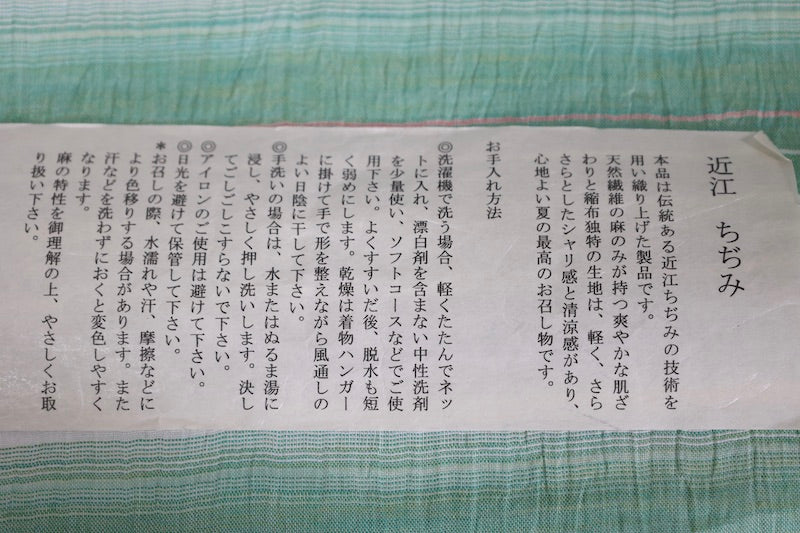 近江 ちぢみ
本品は伝統ある近江ちぢみの技術を
用い織り上げた製品です。
天然繊維の麻のみが持つ爽やかな肌ざ
わりと縮布独特の生地は、軽く、さら
さらとしたシャリ感と清涼感があり、
心地よい夏の最高のお召し物です。
お手入れ方法
◎洗濯機で洗う場合、軽くたたんでネッ
トに入れ、漂白剤を含まない中性洗剤
を少量使い、ソフトコースなどでご使
用下さい。よくすすいだ後、脱水も短
く弱めにします。乾燥は着物ハンガー
に掛けて手で形を整えながら風通しの
よい日陰に干して下さい。
◎手洗いの場合は、水またはぬるま湯に
浸し、やさしく押し洗いします。決し
てごしごしこすらないで下さい。
◎アイロンのご使用は避けて下さい。
◎日光を避けて保管して下さい。
＊お召しの際、水濡れや汗、摩擦などに
より色移りする場合があります。また
汗などを洗わずにおくと変色しやすく
なります。
麻の特性を御理解の上、やさしくお取
り扱い下さい。